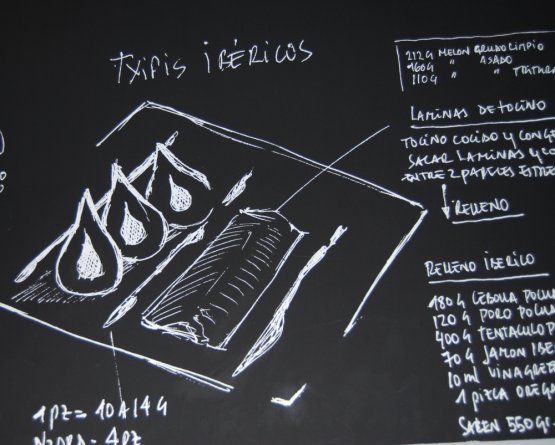 TXIPIS IBÉRICOS
212G MELON CRUDO LIMPIO
160G " ASADO
110G " "
LAMINAS DE TOCINO
TOCINO COCIDO Y CONG
SACAR LAMINAS Y CO
ENTRE 2 PAPELES ENTRE
RELLENO
RELLENO IBERICO
180 G CEBOLLA POCH
120 G PORO POCH
400 G TENTACULOS
70 G JAMON IBE
10 ml VINAGRE
1 PIZCA OREG
SALEN 550 G
1 PZ = 10 A 14 G
4 PZ